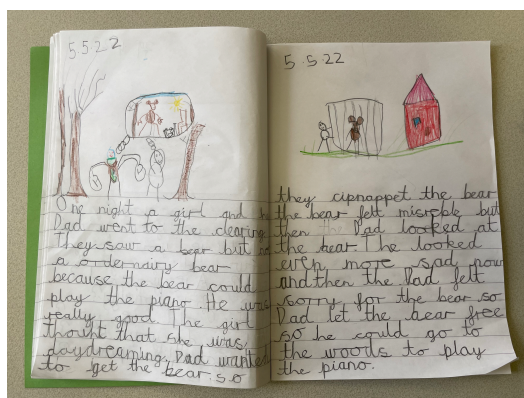 5522
One night a girl and h
Dad went to the clearing
They saw a bear but no
a ordernairy bear
because the bear could
play the piano. He was
really good The girl
thought that she was
daydreaming. Dad wanted
to get the bear. so
5.5.22
they cipnappet the bear
the bear felt misreble but
then the Dad looked at
the bear The looked
even more sad now
and then the Dad felt
sorry for the bear so
Dad let the bear free
so he could go to
the woods to play
the piano.